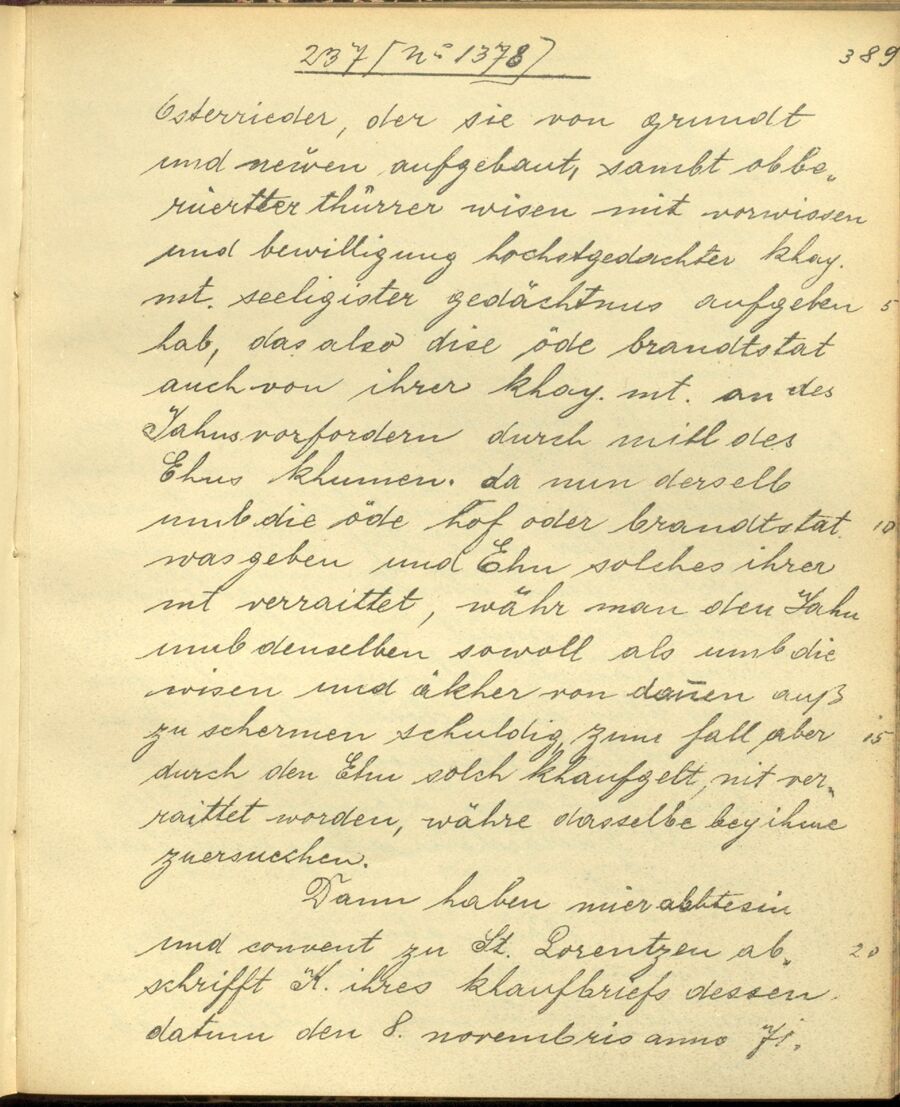 237 [No 1378] 389
Osterrieder, der sie von grundt
und neŭen aufgebaut, sambt obbe„
rüertter thürrer wisen mit vorwissen
und bewilligung hochstgedachter khay.
mt. seeligister gedächtnus aufgeben 5
hab, das also dise öde brandtstat
auch von ihrer khay. mt. an des
Jahns vorfordern durch mitl des
Ehns khumen. da nun derselb
umb die öde hof oder brandtstat 10
was geben und Ehn solches ihrer
mt verraittet, währ man den Jahn
umb denselben sowoll als umb die
wisen und äkher von dan̄en auß
zu schermen schuldig, zum fall aber 15
durch den Ehn solch khaufgelt nit ver„
raittet worden, währe dasselbe bey ihme
zuersuechen.
Dann haben mier abbtesin
und convent zu St. Lorentzen ab„ 20
schrifft K. ihres khaufbriefs dessen
datum den 8. novembris anno 71.